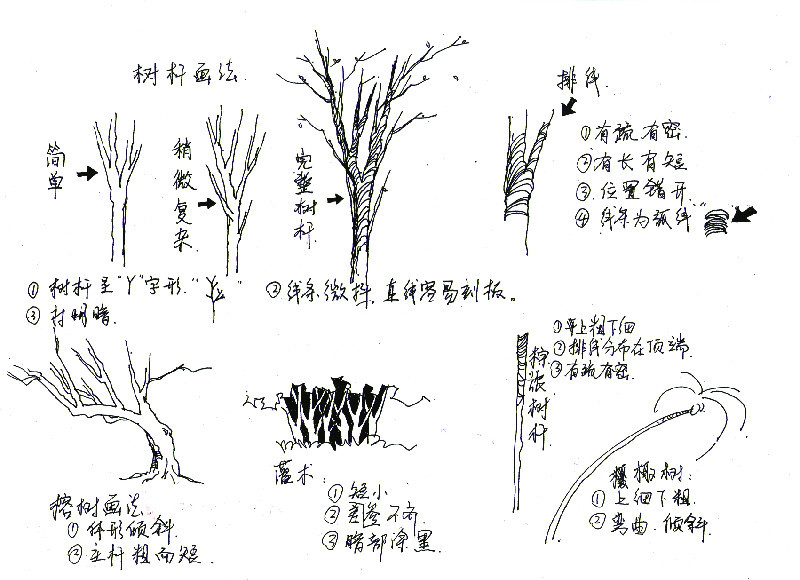 树杆画法
简单
稍微复杂
完整树杆
排线
①有疏有密.
②有长有短
③.位置错开
④线条为弧线"
①树杆呈"Y"字形."
"
②线条微抖.直线容易刻板。
③打明暗.
榕树画法
①体形倾斜
②主杆粗而短.
灌木:
①短小
②不齐
③暗部涂黑
棕榈树杆
①上粗下细
②排线分布在顶端.
③有疏有密.
树:
①上细下粗.
②弯曲.倾斜